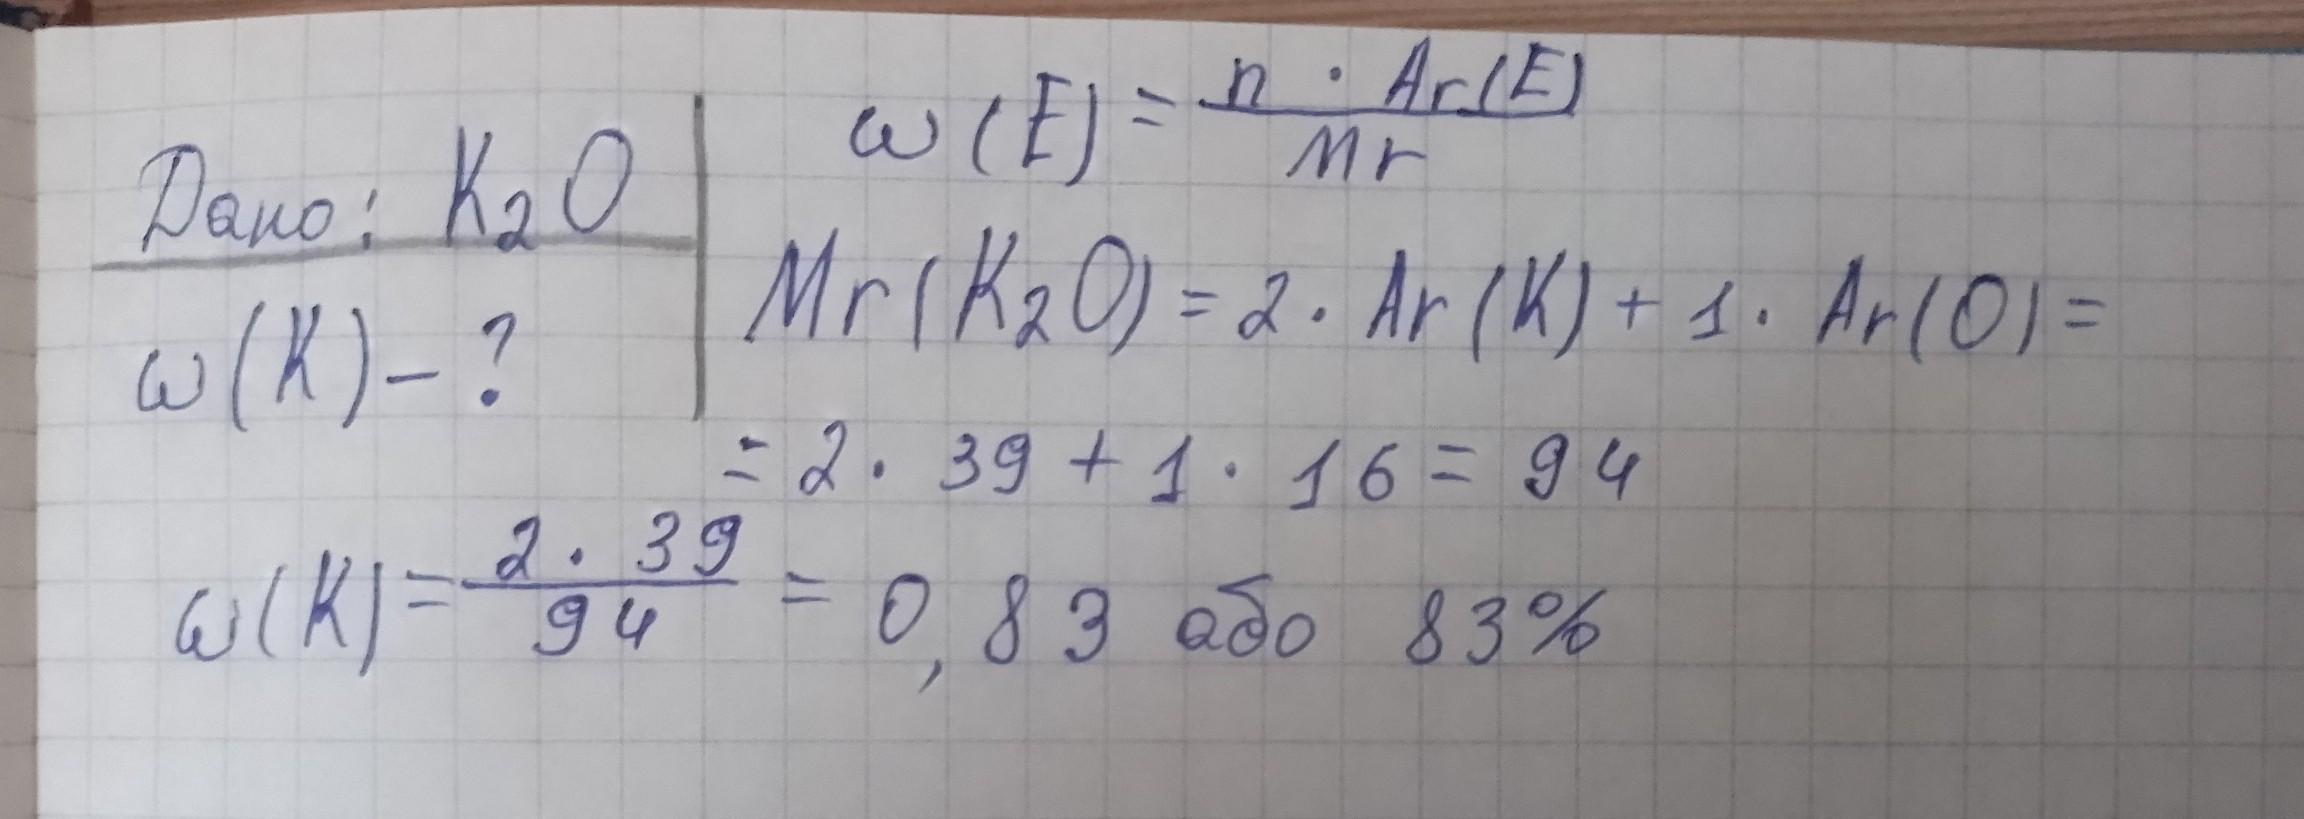 Дано: K₂O
ω(K) – ?
ω(E) = n · Ar(E) / Mr
Mr(K₂O) = 2 · Ar(K) + 1 · Ar(O) =
= 2 · 39 + 1 · 16 = 94
ω(K) = 2 · 39 / 94 = 0,83 або 83%